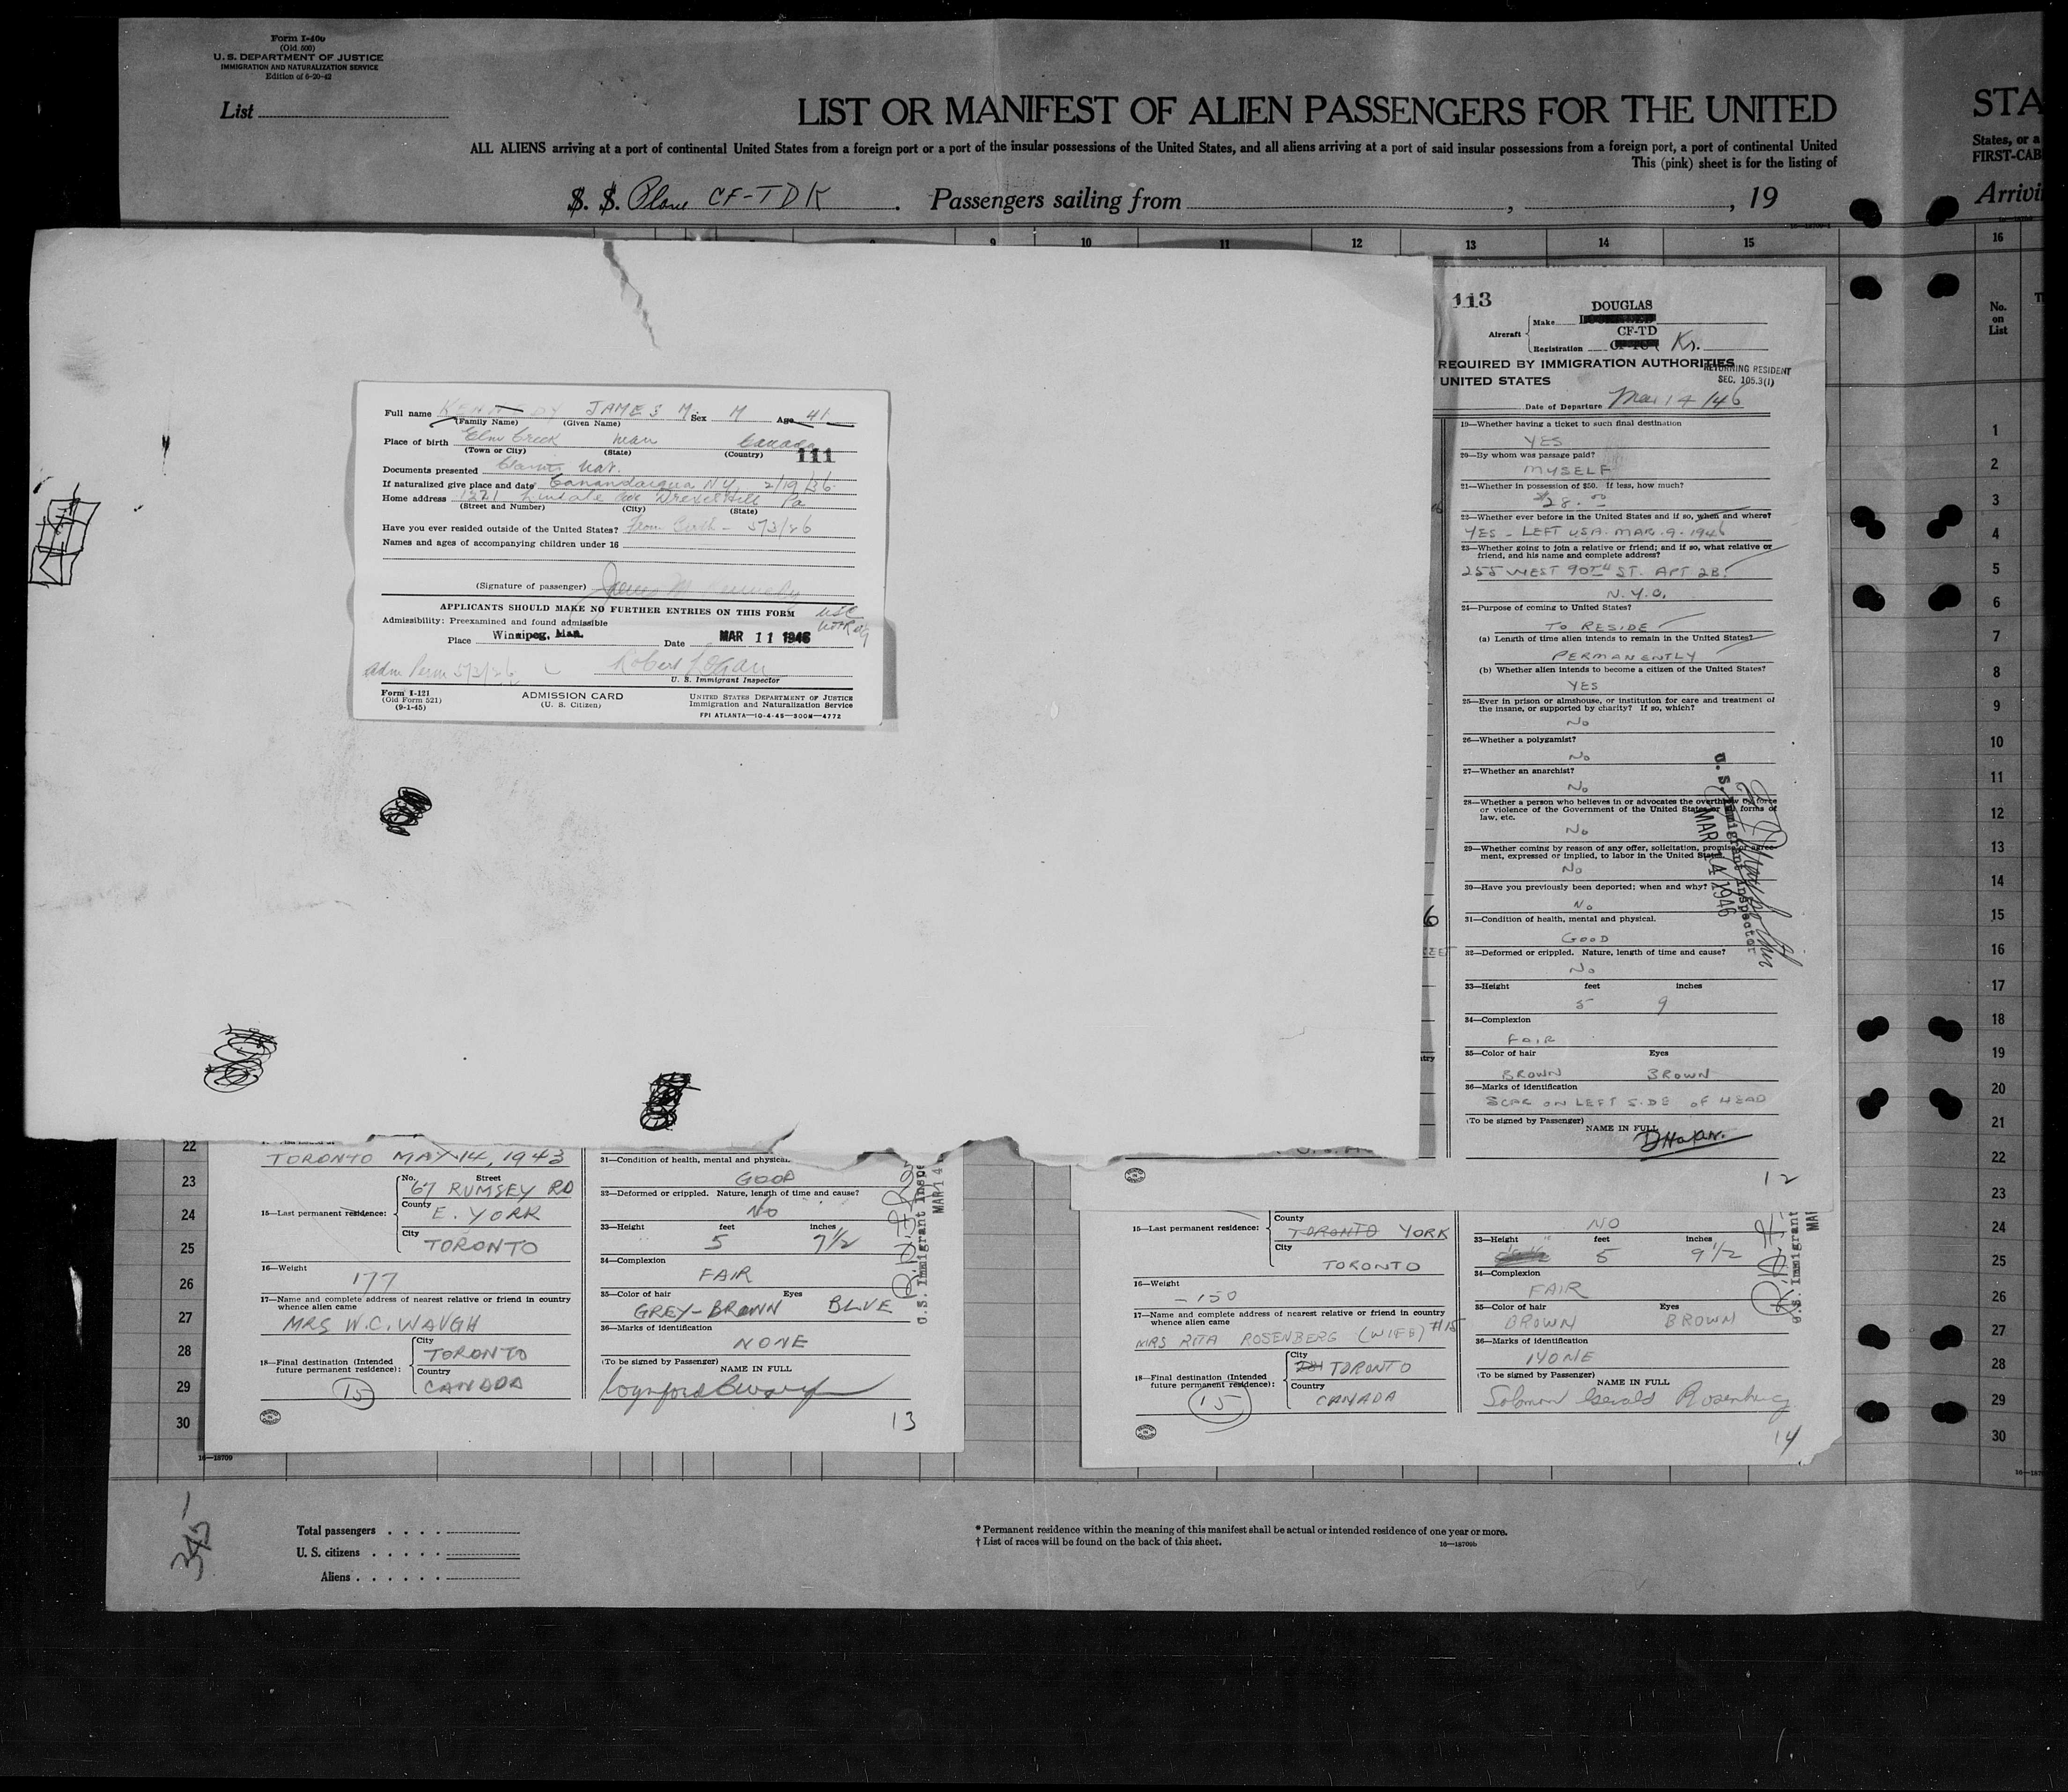 Form I-400
(Old 500)
U. S. DEPARTMENT OF JUSTICE
IMMIGRATION AND NATURALIZATION SERVICE
Edition of 6-20-42
List
LIST OR MANIFEST OF ALIEN PASSENGERS FOR THE UNITED
STA
ALL ALIENS arriving at a port of continental United States from a foreign port or a port of the insular possessions of the United States, and all aliens arriving at a port of said insular possessions from a foreign port, a port of continental United
States, or a
This (pink) sheet is for the listing of
FIRST-CAB
S. S. Plane CF-TDK. Passengers sailing from , , 19
Arrivi
9 10 11 12 13 14 15
16
No.
on
List
1
2
3
4
5
6
7
8
9
10
11
12
13
14
15
16
17
18
19
20
21
22
23
24
25
26
27
28
29
30
Full name KENNEDY JAMES M. Sex M Age 41
(Family Name) (Given Name)
Place of birth Elm Creek Man Canada
(Town or City) (State) (Country) 111
Documents presented Claims Nat.
If naturalized give place and date Canandaigua N.Y. 2/19/36
Home address 1221 Lindale Ave Drexel Hill Pa
(Street and Number) (City) (State)
Have you ever resided outside of the United States? From Birth - 5/3/26
Names and ages of accompanying children under 16
(Signature of passenger) James M Kennedy
APPLICANTS SHOULD MAKE NO FURTHER ENTRIES ON THIS FORM
USC
Admissibility: Preexamined and found admissible
Place Winnipeg, Man. Date MAR 11 1946
Adm Perm 5/3/26 Robert Logan
U. S. Immigrant Inspector
Form I-121
(Old Form 521)
(9-1-45)
ADMISSION CARD
(U. S. Citizen)
UNITED STATES DEPARTMENT OF JUSTICE
Immigration and Naturalization Service
FPI ATLANTA—10-4-45—300M—4772
113
DOUGLAS
Aircraft Make
CF-TD
Registration K
REQUIRED BY IMMIGRATION AUTHORITIES
UNITED STATES
RETURNING RESIDENT
SEC. 105.3(1)
Date of Departure Mar 14/46
19—Whether having a ticket to such final destination
YES
20—By whom was passage paid?
MYSELF
21—Whether in possession of $50. If less, how much?
$28.00
22—Whether ever before in the United States and if so, when and where?
YES - LEFT USA. MAR. 9. 1946
23—Whether going to join a relative or friend; and if so, what relative or
friend, and his name and complete address?
255 WEST 90TH ST. APT 2B.
N.Y.C.
24—Purpose of coming to United States?
TO RESIDE
(a) Length of time alien intends to remain in the United States?
PERMANENTLY
(b) Whether alien intends to become a citizen of the United States?
YES
25—Ever in prison or almshouse, or institution for care and treatment of
the insane, or supported by charity? If so, which?
No
26—Whether a polygamist?
No
27—Whether an anarchist?
No
28—Whether a person who believes in or advocates the overthrow by force
or violence of the Government of the United States or all forms of
law, etc.
No
29—Whether coming by reason of any offer, solicitation, promise or agree-
ment, expressed or implied, to labor in the United States.
No
30—Have you previously been deported; when and why?
No
31—Condition of health, mental and physical.
GOOD
32—Deformed or crippled. Nature, length of time and cause?
No
33—Height feet inches
5 9
34—Complexion
FAIR
35—Color of hair Eyes
BROWN BROWN
36—Marks of identification
SCAR ON LEFT SIDE OF HEAD
(To be signed by Passenger)
NAME IN FULL
12
U. S. Immigrant Inspector
MAR 14 1946
22
23
24
25
26
27
28
29
30
TORONTO MAY 14, 1943
No. Street
67 RUMSEY RD
County
15—Last permanent residence: E. YORK
City
TORONTO
16—Weight
177
17—Name and complete address of nearest relative or friend in country
whence alien came
MRS W.C. WAUGH
City
TORONTO
18—Final destination (Intended
future permanent residence):
Country
CANADA
15
31—Condition of health, mental and physical.
GOOD
32—Deformed or crippled. Nature, length of time and cause?
No
33—Height feet inches
5 7½
34—Complexion
FAIR
35—Color of hair Eyes
GREY-BROWN BLUE
36—Marks of identification
NONE
(To be signed by Passenger)
NAME IN FULL
13
U.S. Immigrant Inspe
MAR 14
County
15—Last permanent residence: TORONTO YORK
City
TORONTO
16—Weight
- 150
17—Name and complete address of nearest relative or friend in country
whence alien came
MRS RITA ROSENBERG (WIFE) #15
City
TORONTO
18—Final destination (Intended
future permanent residence):
Country
CANADA
15
NO
33—Height feet inches
5 9½
34—Complexion
FAIR
35—Color of hair Eyes
BROWN BROWN
36—Marks of identification
NONE
(To be signed by Passenger)
NAME IN FULL
Solomon Gerald Rosenberg
14
U.S. Immigrant
MAR
16—18709
345-
Total passengers
U. S. citizens
Aliens
* Permanent residence within the meaning of this manifest shall be actual or intended residence of one year or more.
† List of races will be found on the back of this sheet.
16—18709b